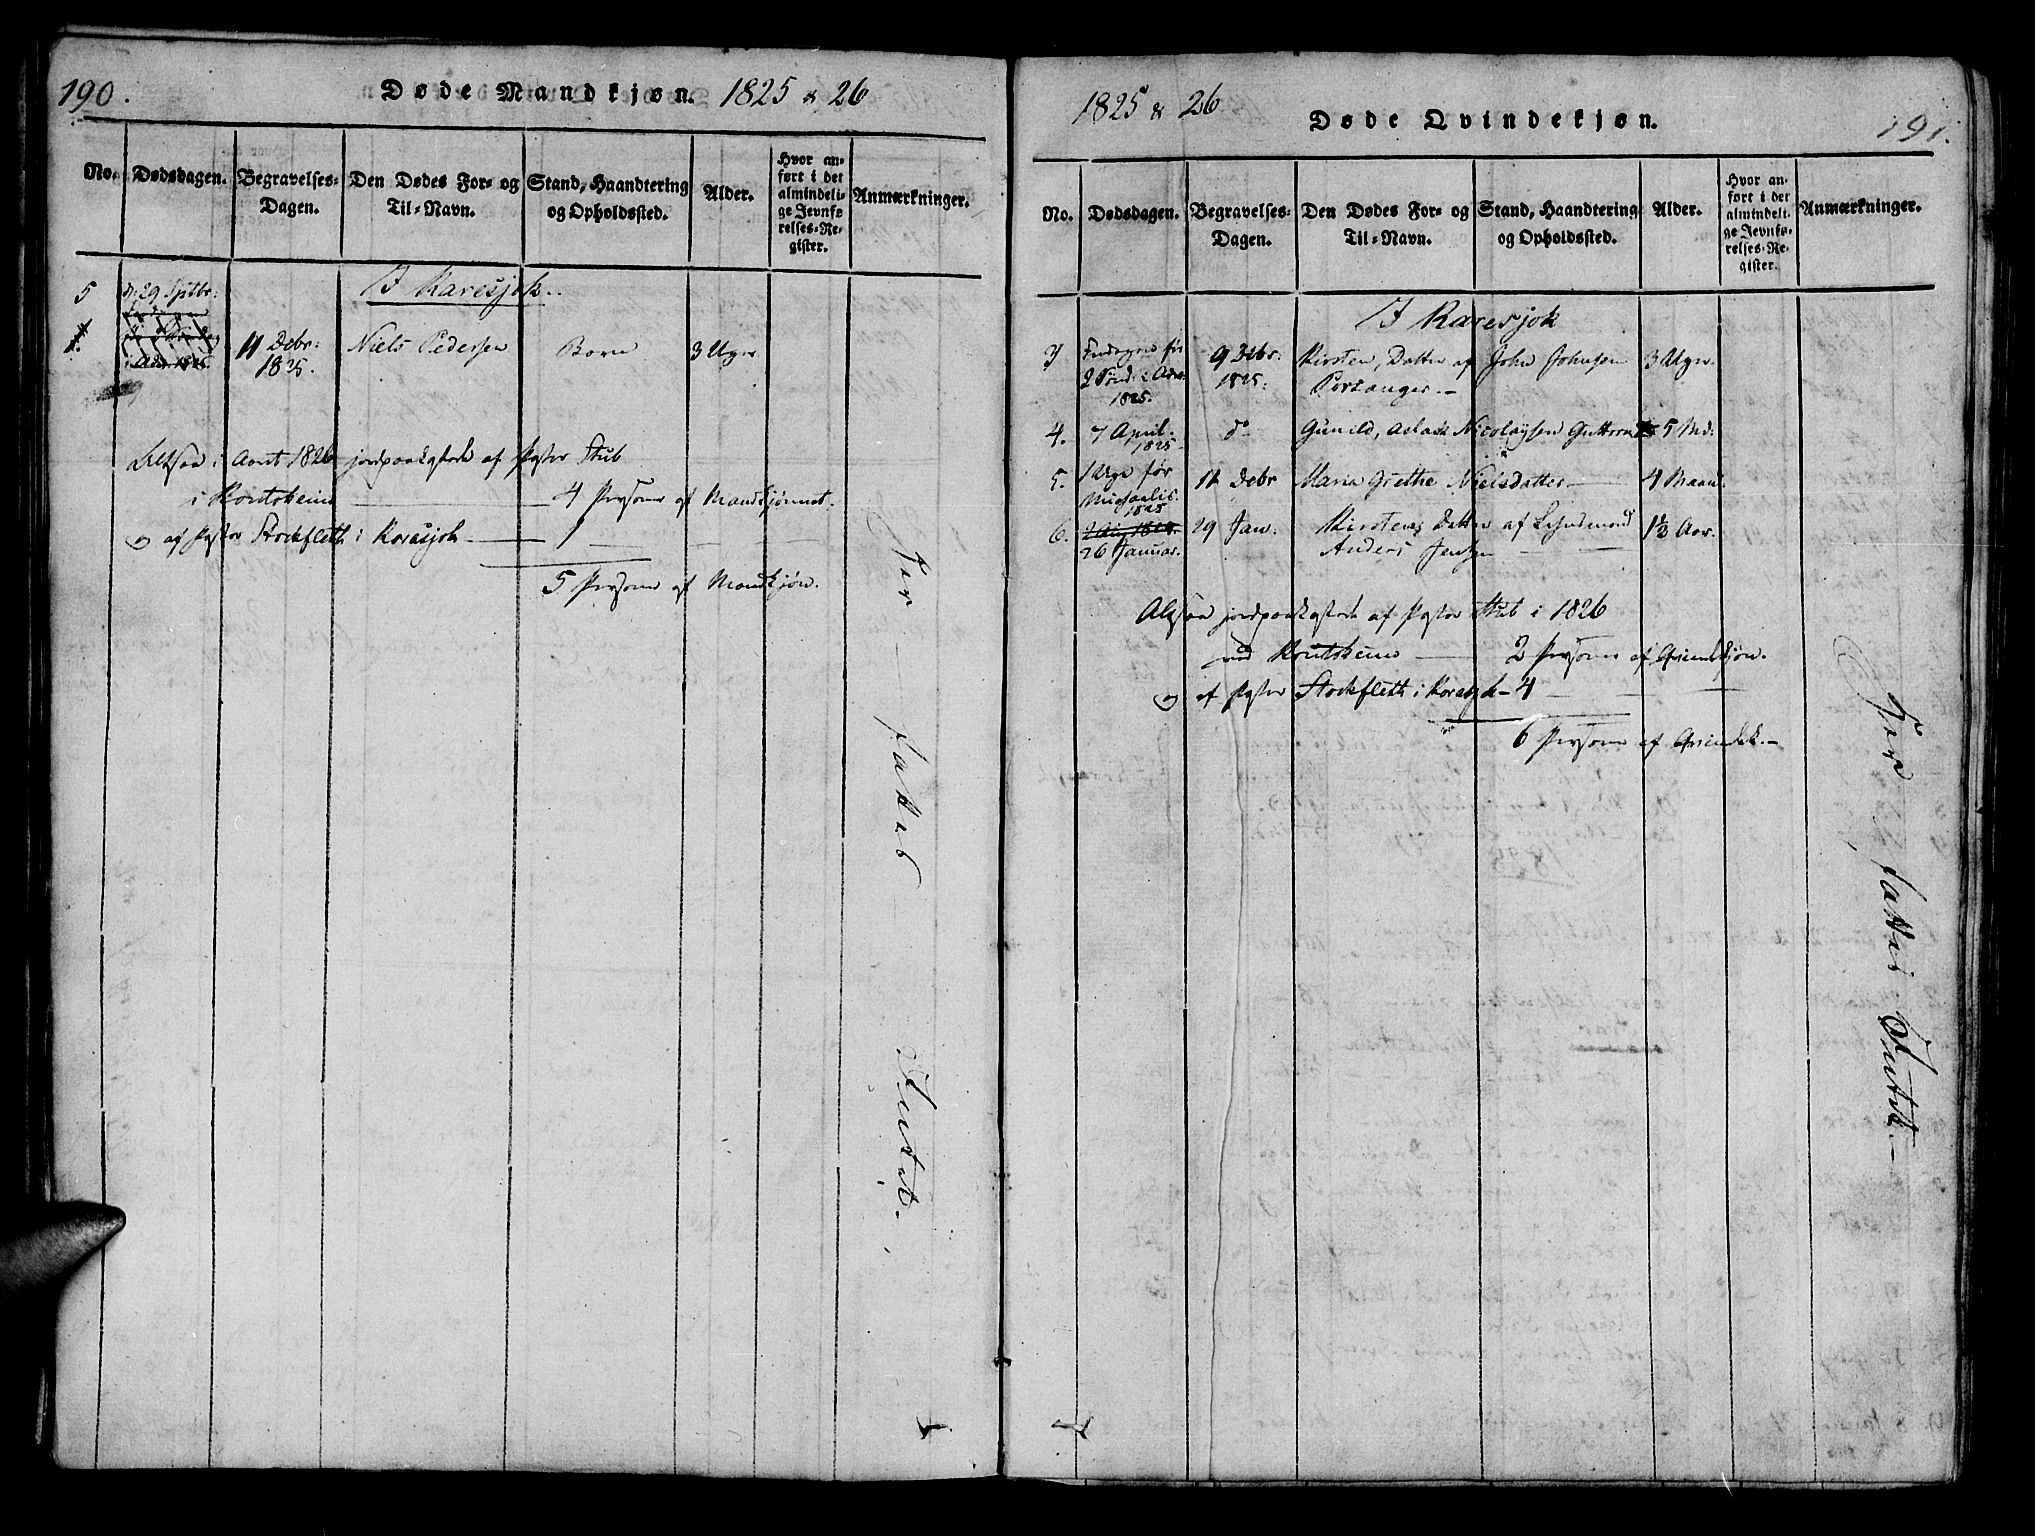 190.
Døde Mandkjøn. 1825 & 26
No.
Dødsdagen.
Begravelses-
Dagen.
Den Dødes For- og
Til-Navn.
Stand, Haandtering
og Opholdssted.
Alder.
Hvor an-
ført i det
almindeli-
ge Jevnfø-
relses-Re-
gister.
Anmærkninger.
I Karesjok.
5 d: 29 Sptbr:
1. 11 Debr: Niels Pedersen Barn 3 Uger
1825.
Altsaa i Aaret 1826 jordpaakastede af Pastor Stub
i Koutokeino 4 Personer af Mandkjønnet.
og af Pastor Stockfleth i Korasjok 1
5 Personer af Mandkjøn.
Her fattes Intet.
1825 & 26
Døde Qvindekjøn.
191.
No.
Dødsdagen.
Begravelses-
Dagen.
Den Dødes For- og
Til-Navn.
Stand, Haandtering
og Opholdssted.
Alder.
Hvor an-
ført i det
almindeli-
ge Jevnfø-
relses-Re-
gister.
Anmærkninger.
I Karesjok
3 Fredagen før 9 Debr: Kirsten, Datter af John Johnsen 3 Uger
2 Sønd: i Adv: 1825: Porsanger
1825.
4. 7 April do Gunild, Aslak Nicolaysen 5 Md:
1825
5. 1 Uge før 11 Debr Maria Grethe Nielsdatter 4 Maan:
Michaelis.
1825
6. 29 Jan: Datter af 1½ Aar.
26 Januar. Anders Jensen
Altsaa jordpaakastede af Pastor Stub i 1826
ved Koutokeino 2 Personer af Qvindekjøn.
og af Pastor Stockfleth i Korasjok 4
6 Personer af Qvindek.
Her fattes Intet.